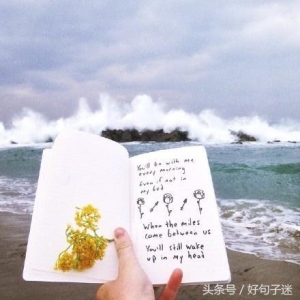 You'll be with me
every morning
Even if not in
my bed
When the miles
come between us
You'll still wake
up in my head
头条号 / 好句子迷